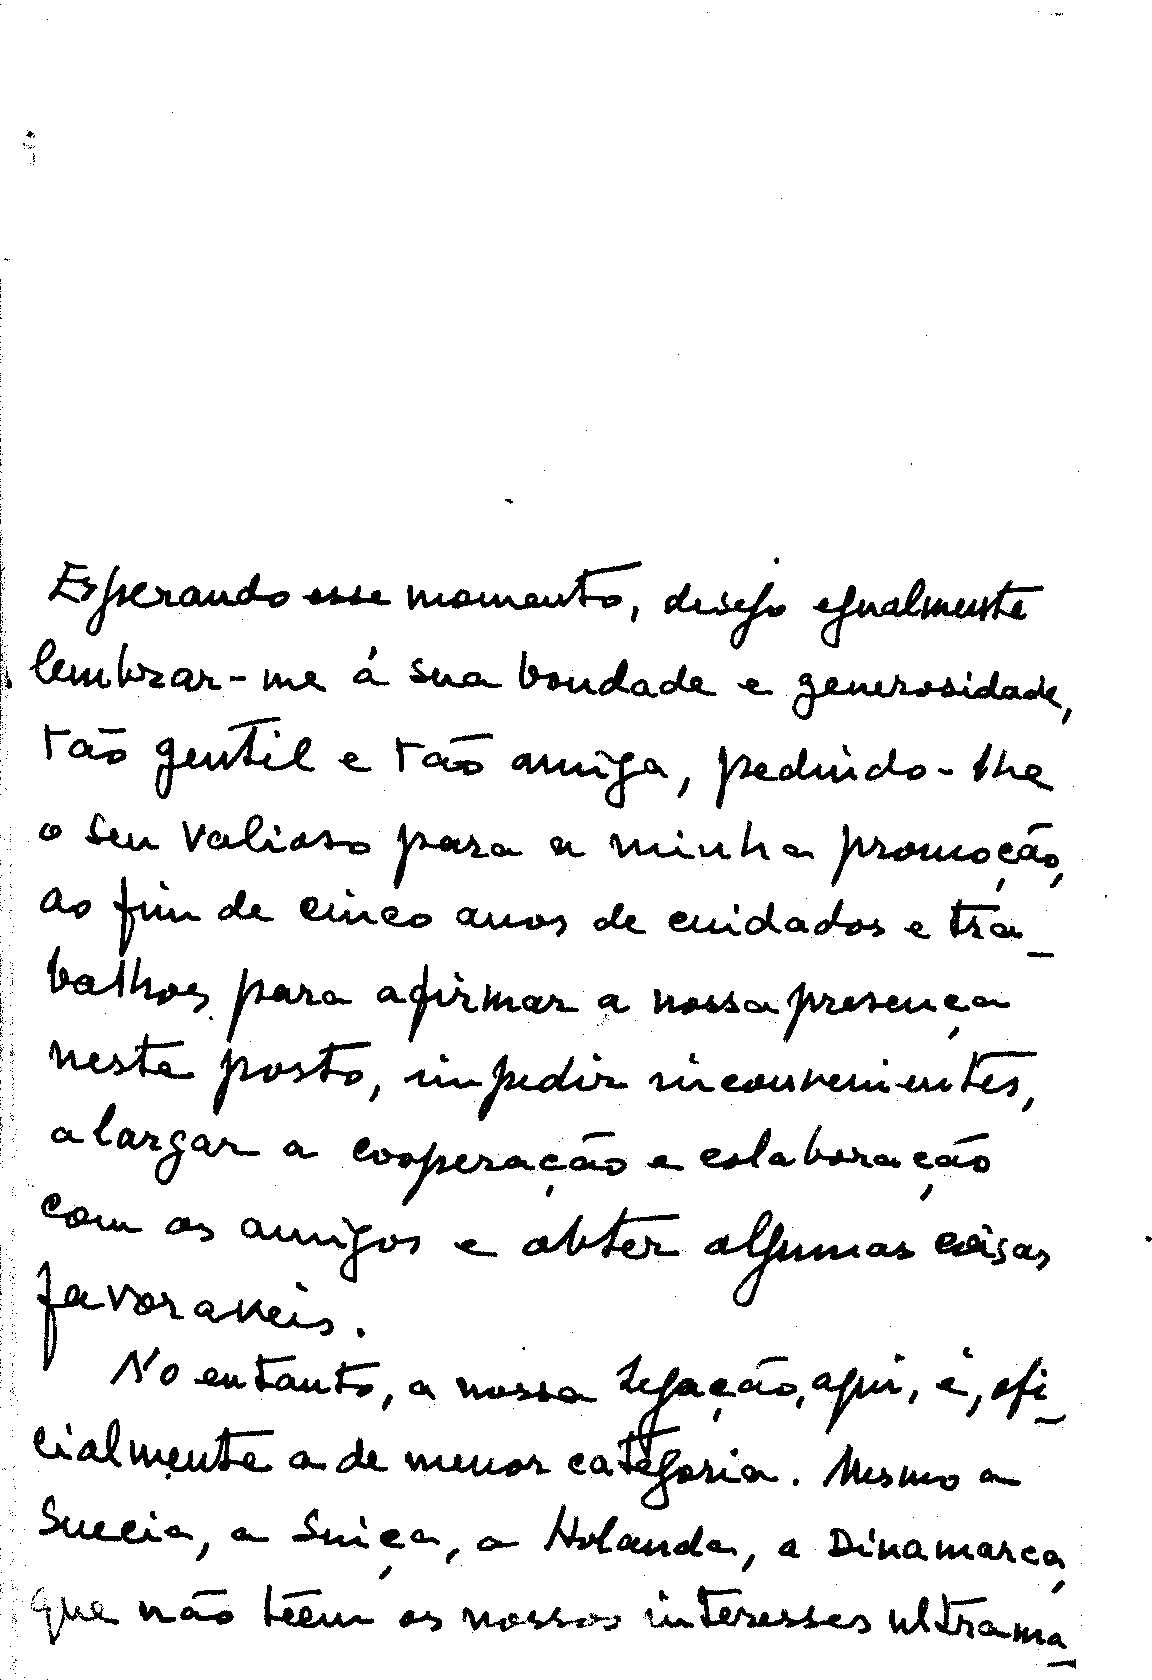 Esperando esse momento, desejo egualmente
lembrar-me á sua bondade e generosidade,
tão gentil e tão amiga, pedindo-lhe
o seu valioso para a minha promoção,
ao fim de cinco anos de cuidados e tra_
balhos, para afirmar a nossa presença
neste posto, impedir inconvenientes,
alargar a cooperação e colaboração
com os amigos e obter algumas coisas
favoraveis.
No entanto, a nossa Legação, aqui, é, ofi_
cialmente a de menor categoria. Mesmo a
Suecia, a Suiça, a Holanda, a Dinamarca,
que não têem os nossos interesses ultrama_